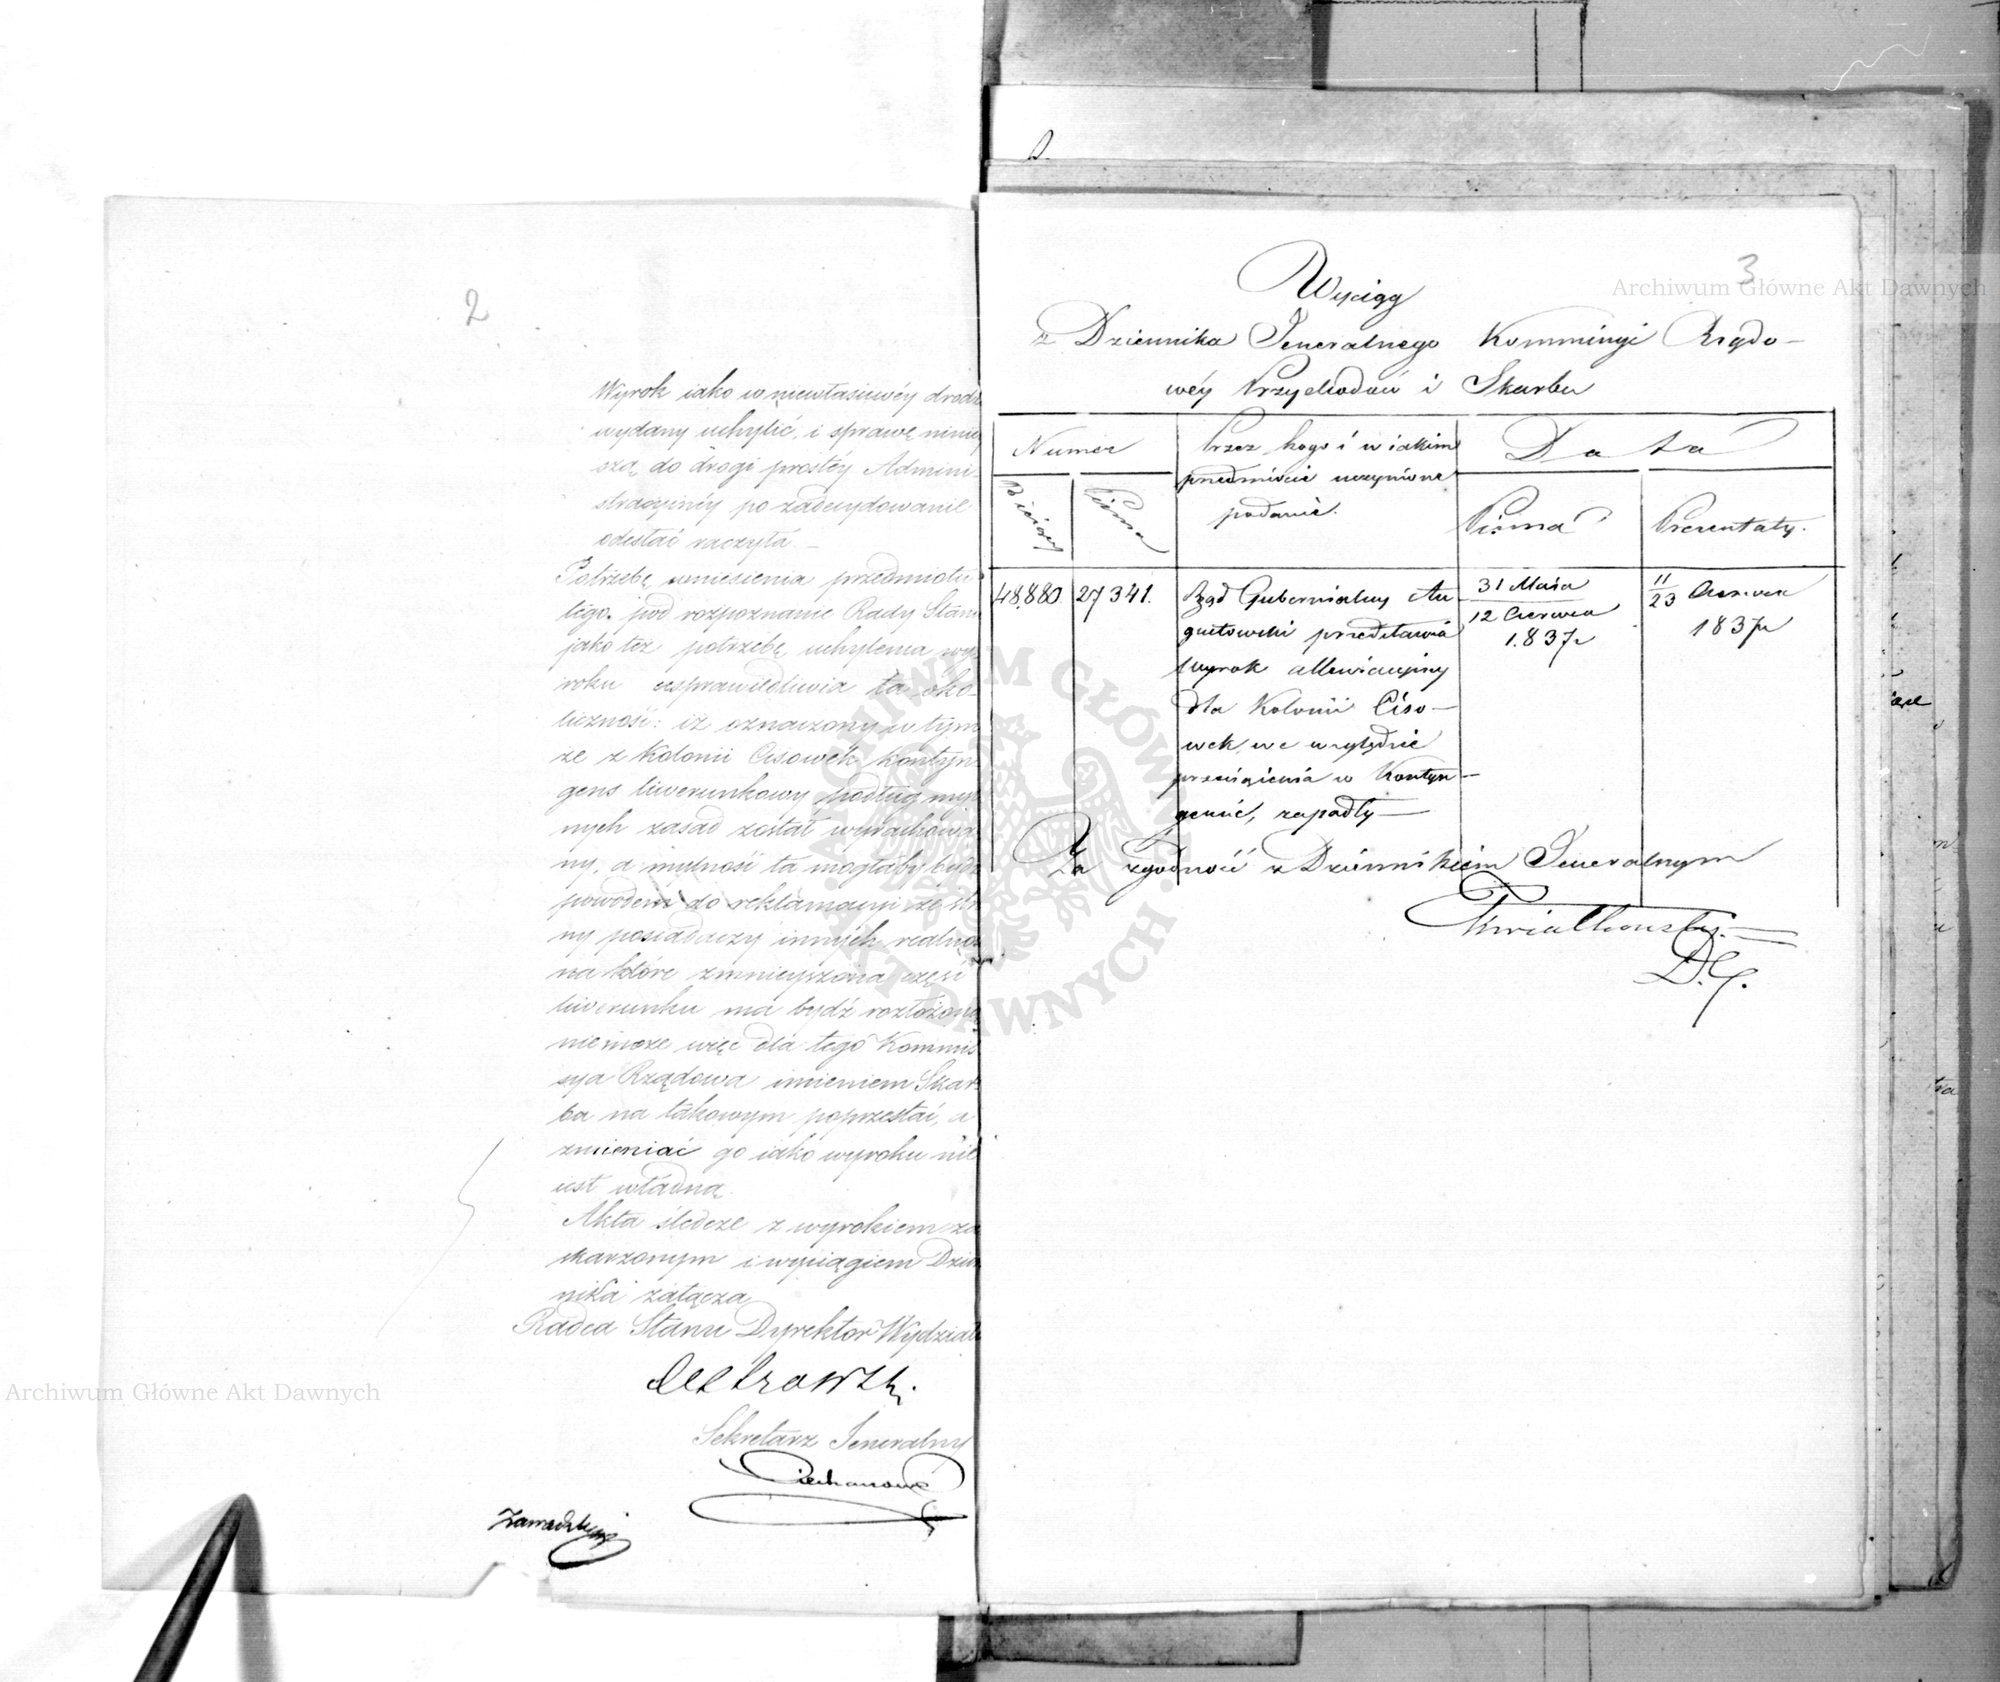 2
Wyrok iako w niewłaściwéy drodz
wydany uchylić, i sprawę niniey
szą do drogi prostéy Admini-
stracyinéy po zadecydowanie
odesłać raczyła. —
Potrzebę wniesienia przedmiotu
tego pod rozpoznanie Rady Stanu
jako też potrzebę uchylenia wy-
roku usprawiedliwia ta oko-
liczność: iż oznaczony w tym
że z Kolonii Cisowek kontyn
gens liwerunkowy podług myl
nych zasad został wyrachowa
ny, a mylność ta mogłaby bydź
powodem do reklamacyi ze str
ny posiadaczy innych realno
na które zmnieyszona część
liwerunku ma bydź rozłożona
niemoże więc dla tego Kommis
sya Rządowa imieniem Skar-
bu na takowym poprzestać, a
zmieniać go iako wyroku nie
iest władną.
Akta śledcze z wyrokiem za
skarżonym i wyciągiem Dzien
nika załącza
Radca Stanu Dyrektor Wydziału
Sekretarz Jeneralny
Ciechanowski
Zawadzki
3
Wyciąg
z Dziennika Jeneralnego Kommissyi Rządo-
wéy Przychodów i Skarbu
Numer
Przez kogo i w iakim
przedmiocie uczynione
podanie.
Data
Bieżący
Pisma
Pisma
Prezentaty.
48,880.
27341.
Rząd Gubernialny Au
gustowski przedstawia
wyrok allewiacyiny
dla Kolonii Ciso-
wek, we względzie
przeciążenia w Kontyn-
gensie, zapadły —
31 Maia
12 Czerwca
1837 r
11
23 Czerwca
1837 r
Za zgodność z Dziennikiem Jeneralnym
Kwiatkowski.
D. J.
Archiwum Główne Akt Dawnych
Archiwum Główne Akt Dawnych
ARCHIWUM GŁÓWNE AKT DAWNYCH